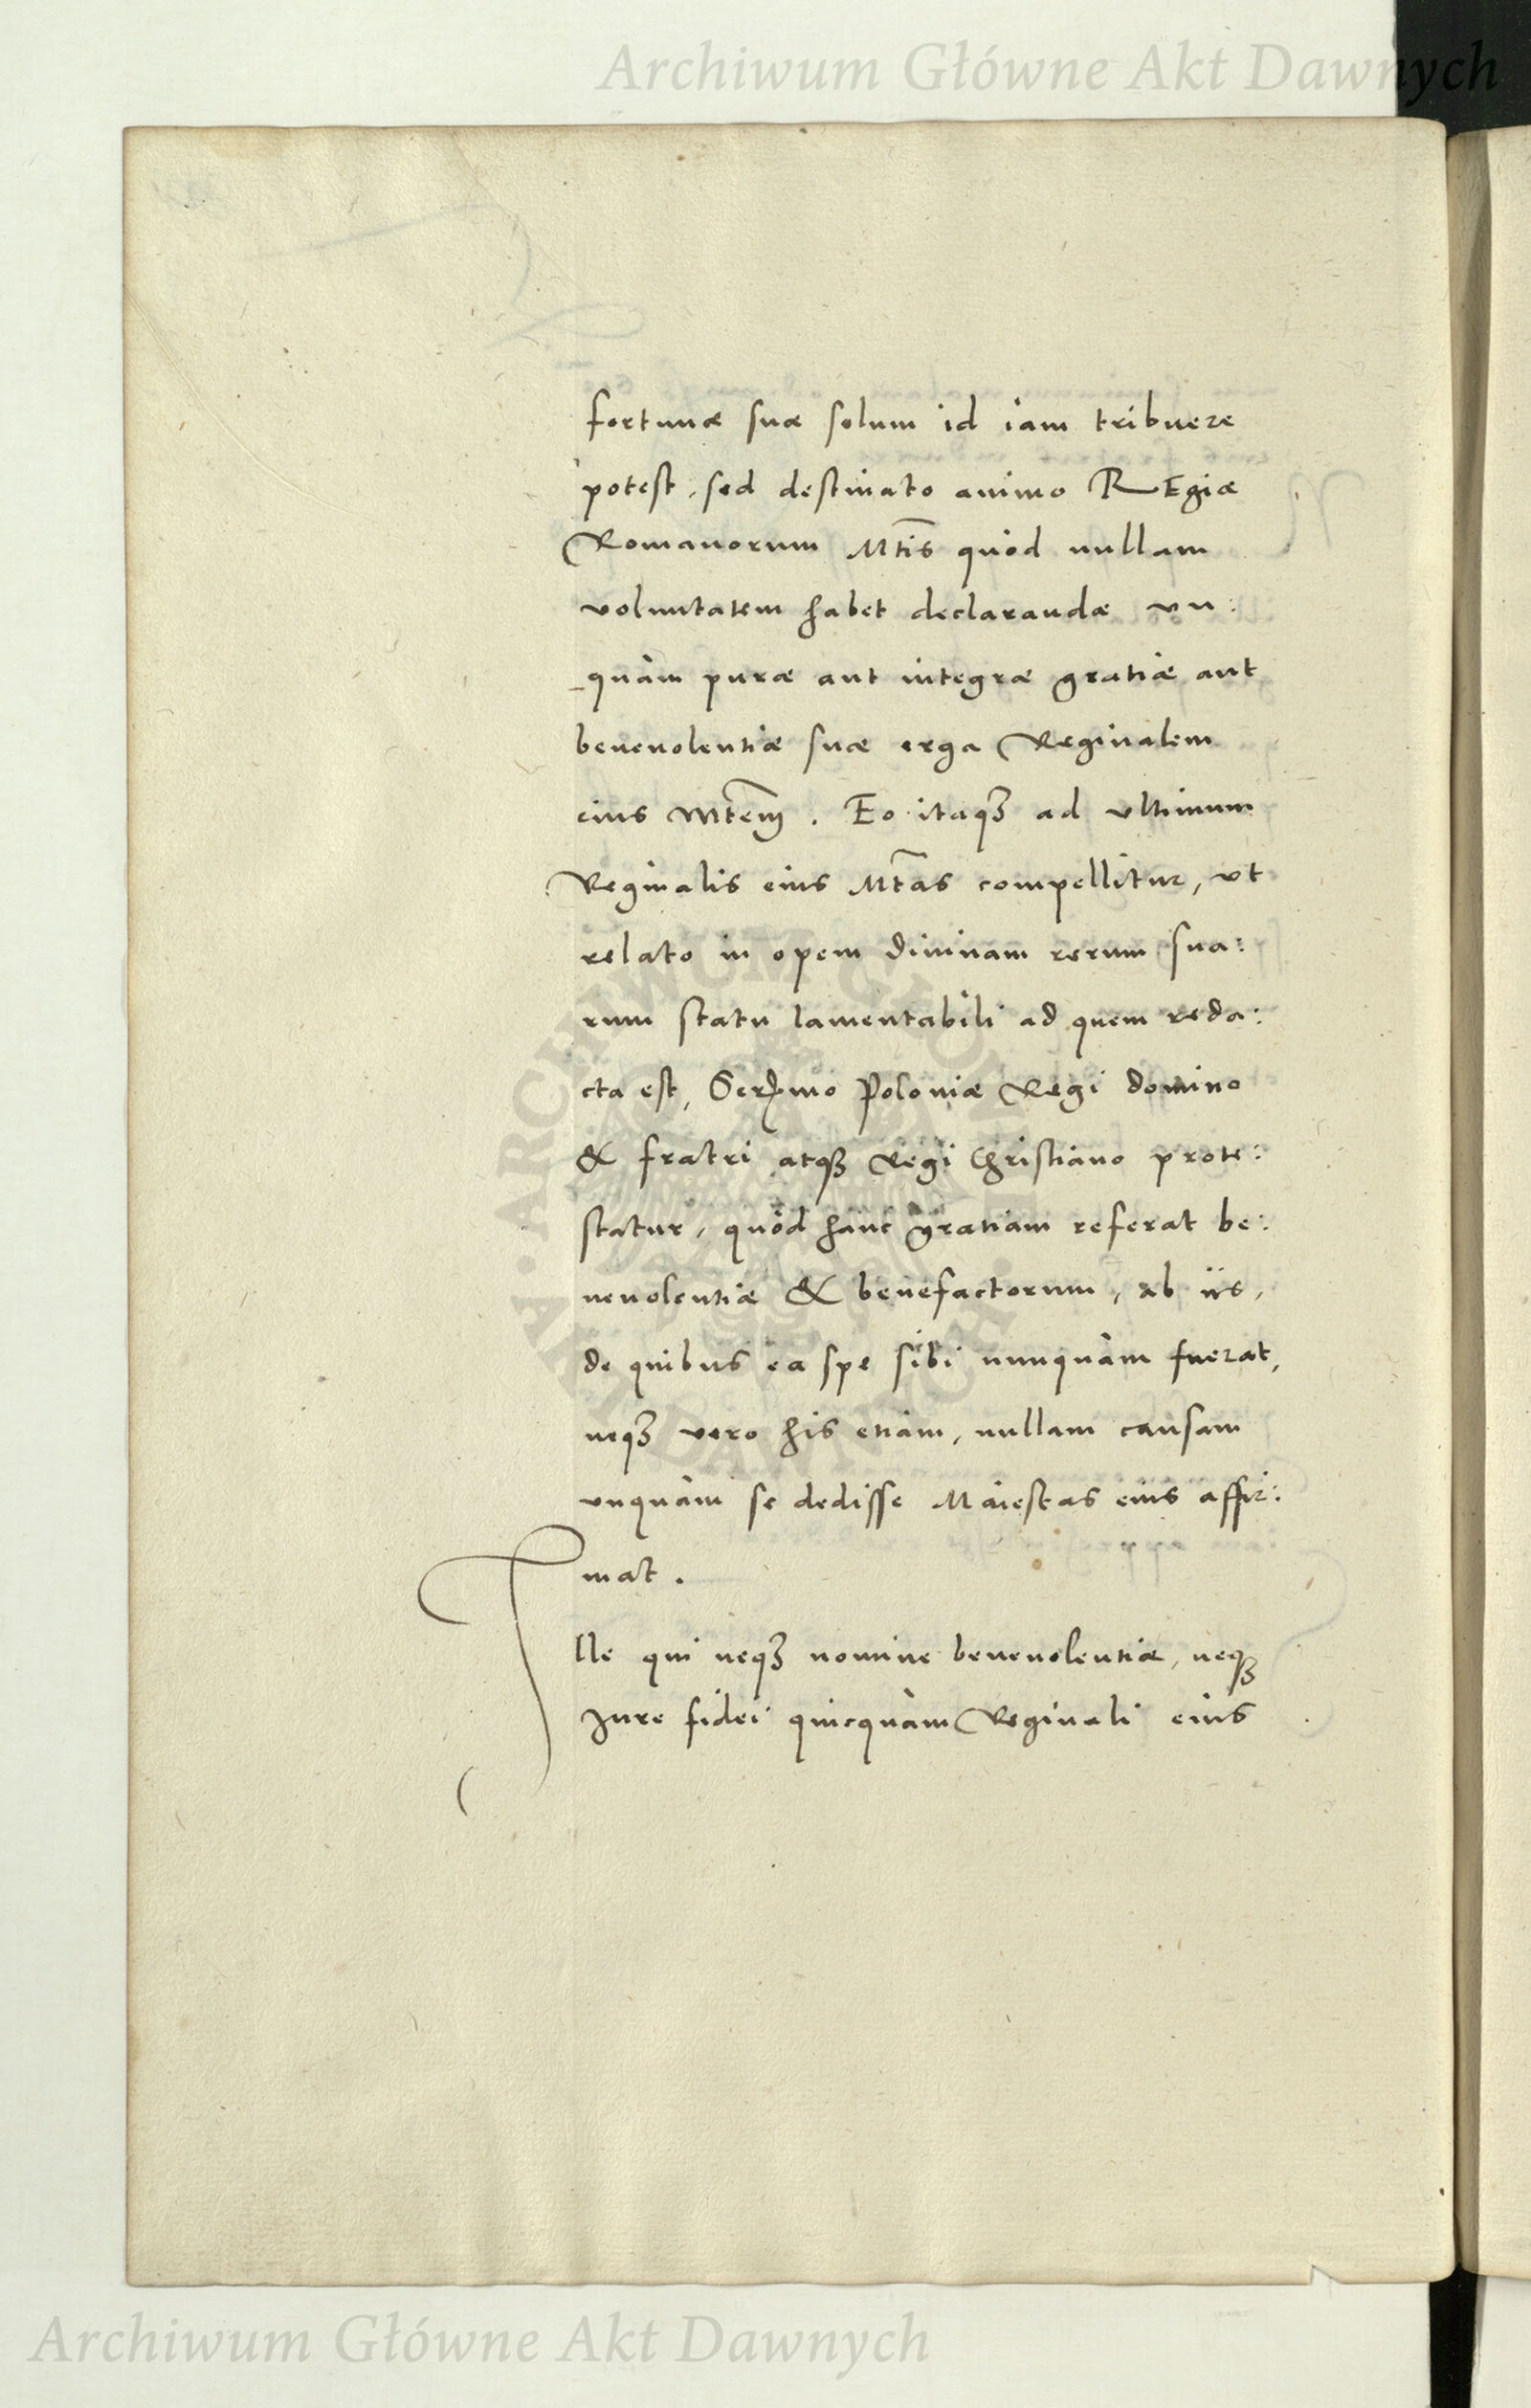 Archiwum Główne Akt Dawnych
fortunæ suæ solum id iam tribuere
potest, sed destinato animo REgiæ
Romanorum Mtis quòd nullam
voluntatem habet declarandæ un:
quàm puræ aut integræ gratiæ aut
beneuolentiæ suæ erga Reginalem
eius Mtem. Eo itaqꝫ ad vltimum
Reginalis eius Mtas compellitur, vt
relato in opem diuinam rerum sua:
rum statu lamentabili ad quem reda:
cta est, Sermo Poloniæ Regi domino
& fratri atqꝫ Regi Christiano prote:
statur, quòd hanc gratiam referat be:
neuolentiæ & benefactorum, ab iis,
de quibus ea spe sibi nunquàm fuerat,
neqꝫ vero his etiam, nullam causam
vnquàm se dedisse Maiestas eius affir:
mat.
Ille qui neqꝫ nomine beneuolentiæ, neqꝫ
Iure fidei quicquàm Reginali eius
Archiwum Główne Akt Dawnych